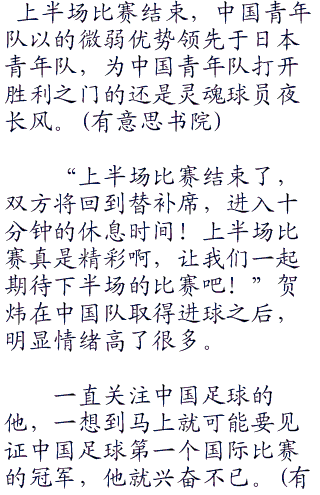 上半场比赛结束，中国青年
队以的微弱优势领先于日本
青年队，为中国青年队打开
胜利之门的还是灵魂球员夜
长风。(有意思书院)
“上半场比赛结束了，
双方将回到替补席，进入十
分钟的休息时间！上半场比
赛真是精彩啊，让我们一起
期待下半场的比赛吧！”贺
炜在中国队取得进球之后，
明显情绪高了很多。
一直关注中国足球的
他，一想到马上就可能要见
证中国足球第一个国际比赛
的冠军，他就兴奋不已。(有